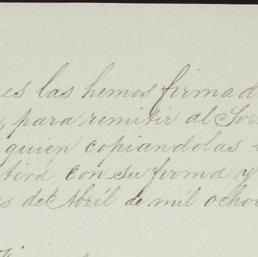 es las hemos firmad
para remitir al Sor
quien copiandolas
tirá con su firma y
s de Abril de mil ocho